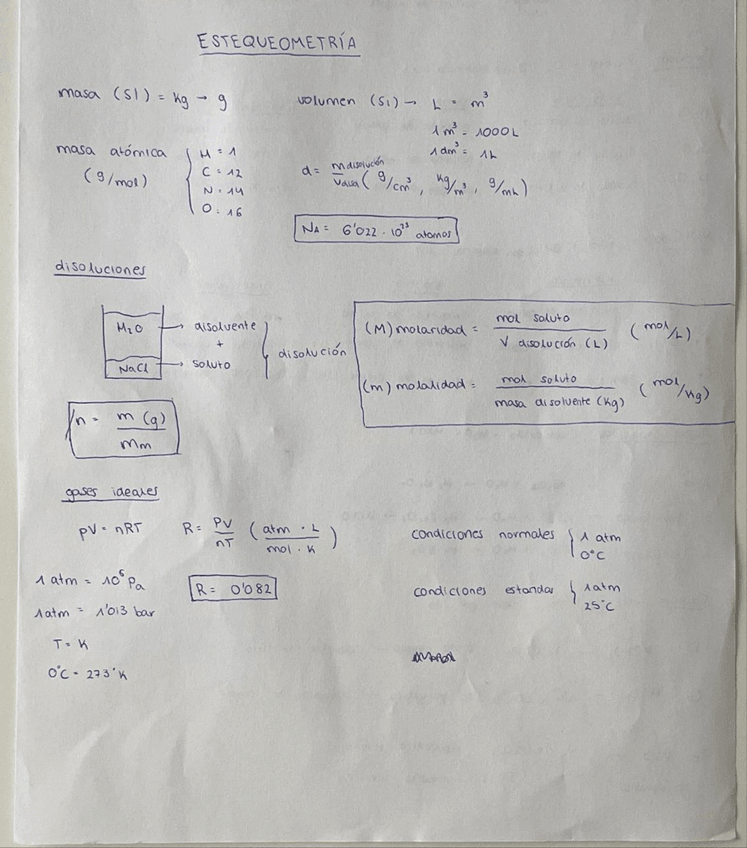 ESTEQUEOMETRÍA
masa (SI) = Kg → g
volumen (SI) → L = m³
1 m³ = 1000 L
1 dm³ = 1L
masa atómica
(g/mol)
H = 1
C = 12
N = 14
O = 16
d = m disolución / V disol (g/cm³, kg/m³, g/mL)
NA = 6'022 · 10²³ atomos
disoluciones
H₂O → disolvente
+
NaCl → soluto
disolución
(M) molaridad = mol soluto / V disolución (L) (mol/L)
(m) molalidad = mol soluto / masa disolvente (Kg) (mol/Kg)
n = m (g) / Mm
gases ideales
pV = nRT
R = PV / nT (atm · L / mol · K)
condiciones normales { 1 atm
0°C
1 atm = 10⁵ Pa
R = 0'082
condiciones estandar { 1 atm
25°C
1 atm = 1'013 bar
T = K
0°C = 273°K